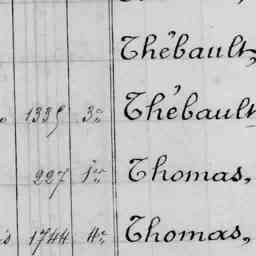 Thébault,
1339 3e Thébault
227 1re Thomas,
1744 4e Thomas,